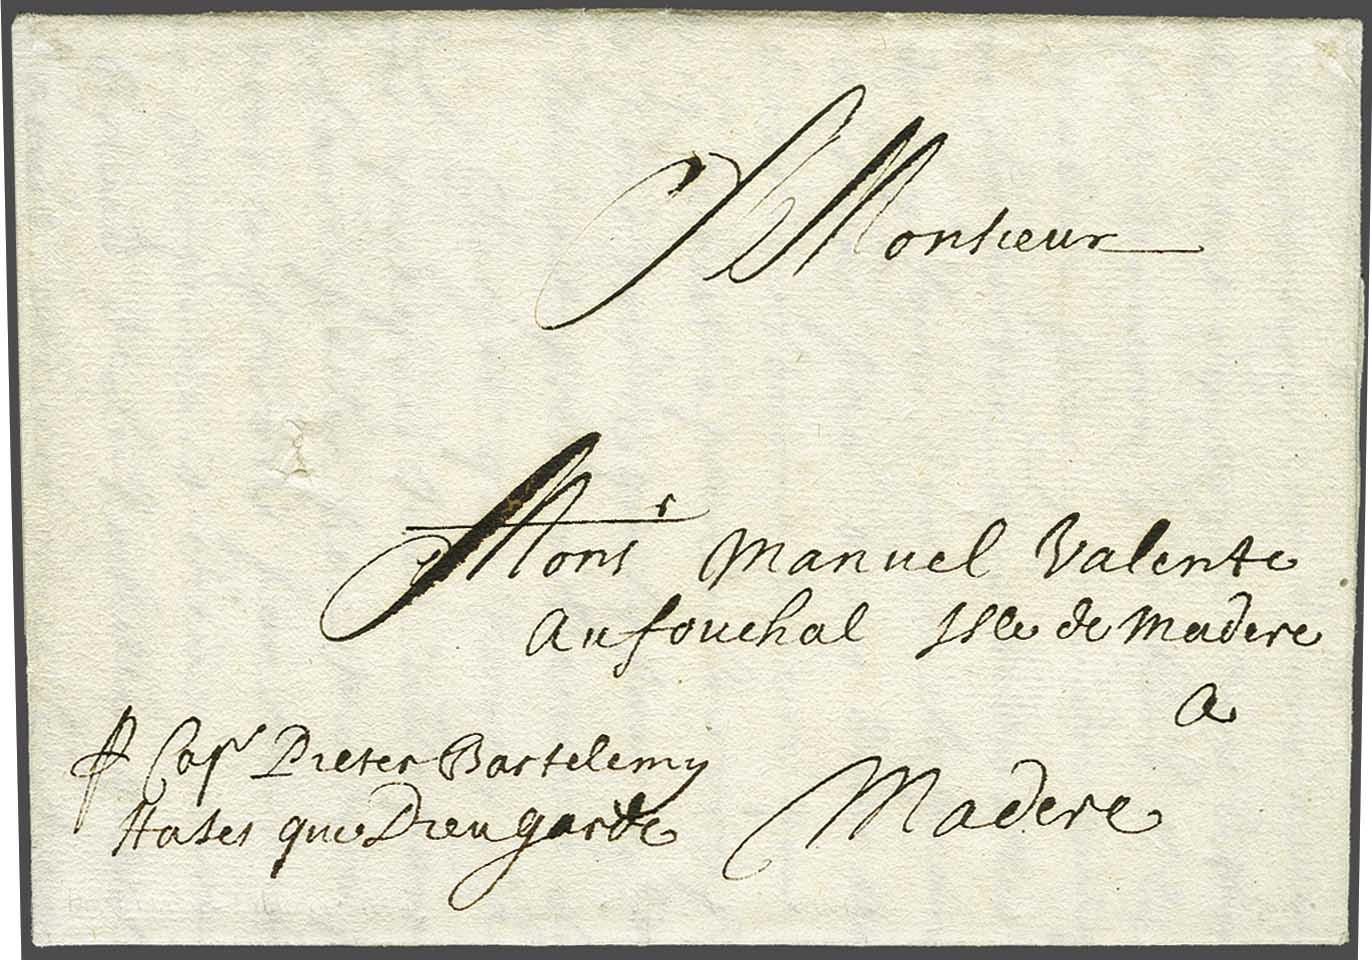 Monsieur
Monsr Manuel Valente
Aufouchal Isle de Madere
a
Madere
p Capt Pieter Bartelemy
Hases que Dieu garde